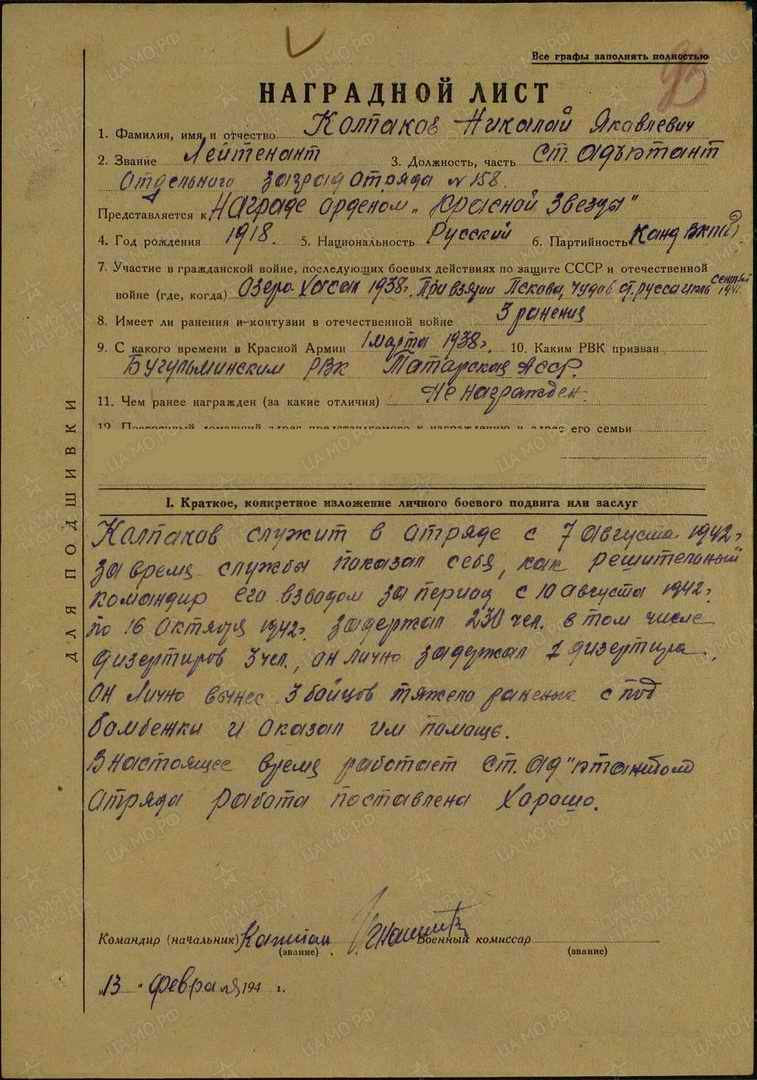 Все графы заполнять полностью
93
НАГРАДНОЙ ЛИСТ
1. Фамилия, имя и отчество Колпаков Николай Яковлевич
2. Звание Лейтенант 3. Должность, часть ст. адъютант
Отдельного заград отряда № 158.
Представляется к Награде орденом "Красной Звезды"
4. Год рождения 1918. 5. Национальность Русский 6. Партийность Канд ВКП(б)
7. Участие в гражданской войне, последующих боевых действиях по защите СССР и отечественной
войне (где, когда) Озеро Хасан 1938г, При взятии Пскова, Чудов ст. русса
8. Имеет ли ранения и контузии в отечественной войне 3 ранения
9. С какого времени в Красной Армии 1 марта 1938г. 10. Каким РВК призван
Бугульминским РВК Татарской АССР.
11. Чем ранее награжден (за какие отличия) Не награжден.
12. Постоянный домашний адрес представляемого к награждению и адрес его семьи
I. Краткое, конкретное изложение личного боевого подвига или заслуг
Колпаков служит в отряде с 7 августа 1942г
за время службы показал себя, как решительный
командир его взводом за период с 10 августа 1942г.
по 16 Октября 1942г. задержал 230 чел. в том числе
дизертиров 3 чел., он лично задержал 1 дизертира.
он лично вынес 3 бойцов тяжело раненых с под
бомбежки и оказал им помощь.
В настоящее время работает ст. ад"ютантом
отряда работа поставлена хорошо.
Командир (начальник) Капитан Военный комиссар
(звание) (звание)
"13" Февраля 194 г.
ДЛЯ ПОДШИВКИ
ЦА МО РФ